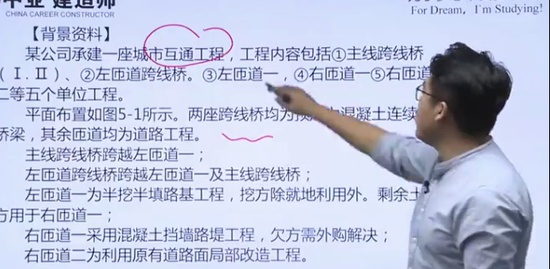 建造师
CHINA CAREER CONSTRUCTOR
For Dream, I'm Studying!
【背景资料】
某公司承建一座城市互通工程,工程内容包括①主线跨线桥
(Ⅰ.Ⅱ)、②左匝道跨线桥。③左匝道一,④右匝道一⑤右匝道
二等五个单位工程。
平面布置如图5-1所示。两座跨线桥均为预 力混凝土连续
桥梁,其余匝道均为道路工程。
主线跨线桥跨越左匝道一;
左匝道跨线桥跨越左匝道一及主线跨线桥;
左匝道一为半挖半填路基工程,挖方除就地利用外。剩余土
方用于右匝道一;
右匝道一采用混凝土挡墙路堤工程,欠方需外购解决;
右匝道二为利用原有道路面局部改造工程。